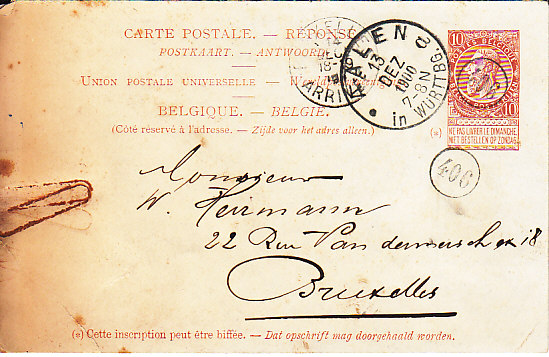 CARTE POSTALE. — RÉPONSE
POSTKAART. — ANTWOORD
UNION POSTALE UNIVERSELLE. —
BELGIQUE. — BELGIË.
(Côté réservé à l'adresse. — Zijde voor het adres alleen.)
ARRI
AALEN
13
DEZ
1900
7-8N
in WÜRTTBG.
10
10
NE PAS LIVRER LE DIMANCHE.
NIET BESTELLEN OP ZONDAG.
(*)
406
Monsieur
W. Heirmann
22 Rue Van
Bruxelles
(*) Cette inscription peut être biffée. — Dat opschrift mag doorgehaald worden.